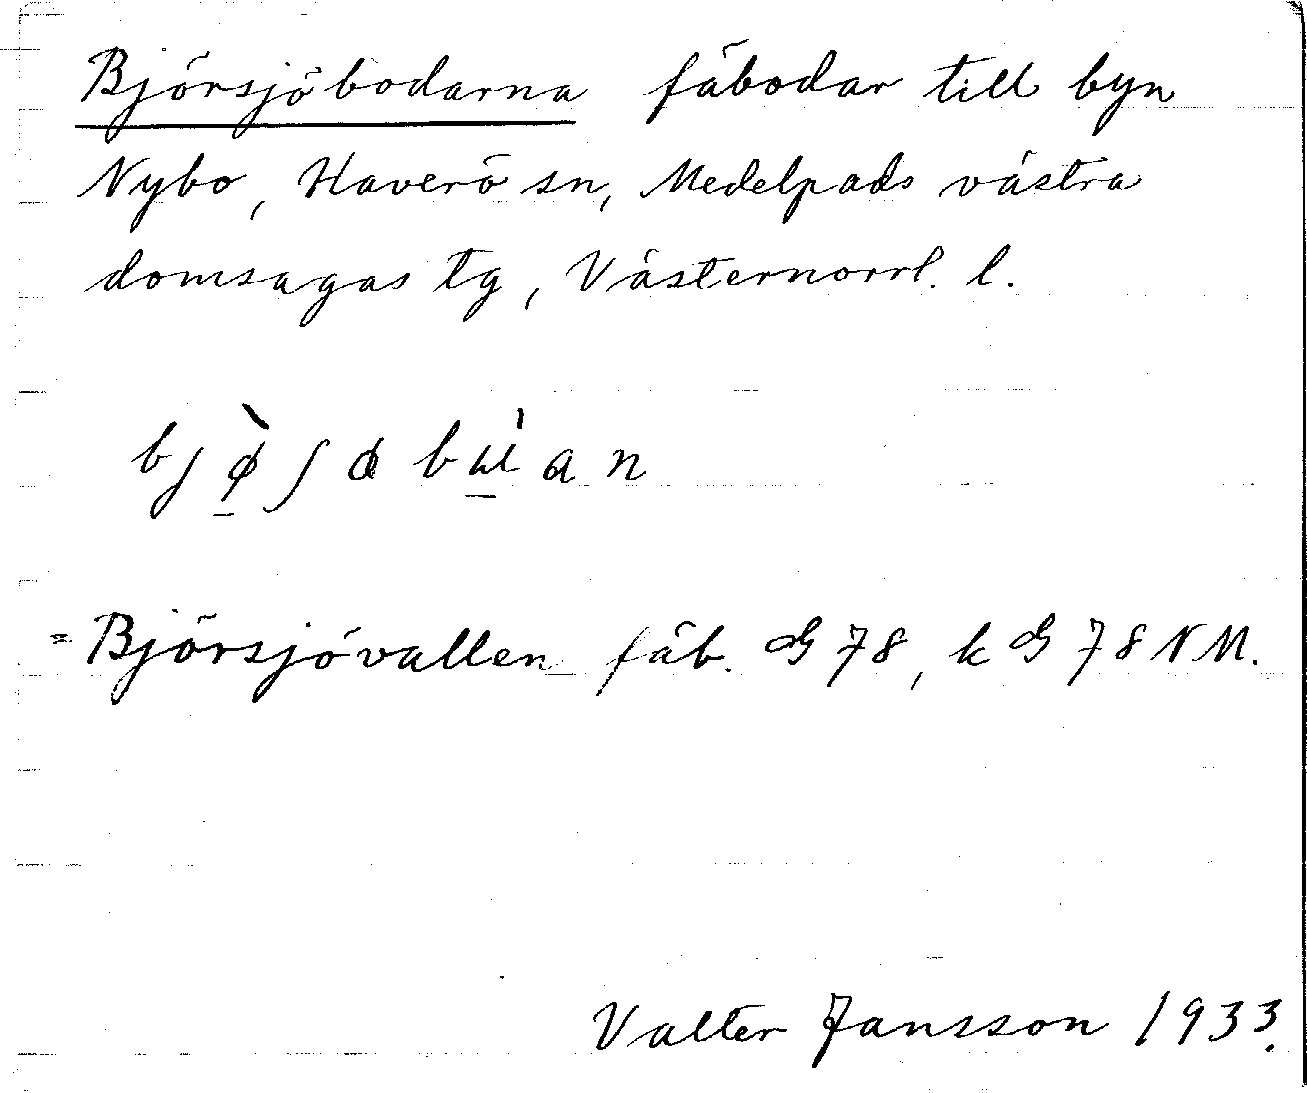 Björsjöbodarna fäbodar till byn
Nybo, Haverö sn, Medelpads västra
domsagas tg, Västernorrl. l.
= Björsjövallen fäb. G 78, k G 78 NM.
Valter Jansson 1933.